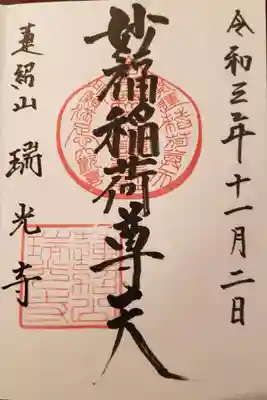 令和三年十一月二日
妙福稲荷尊天
蓮紹山 瑞光寺